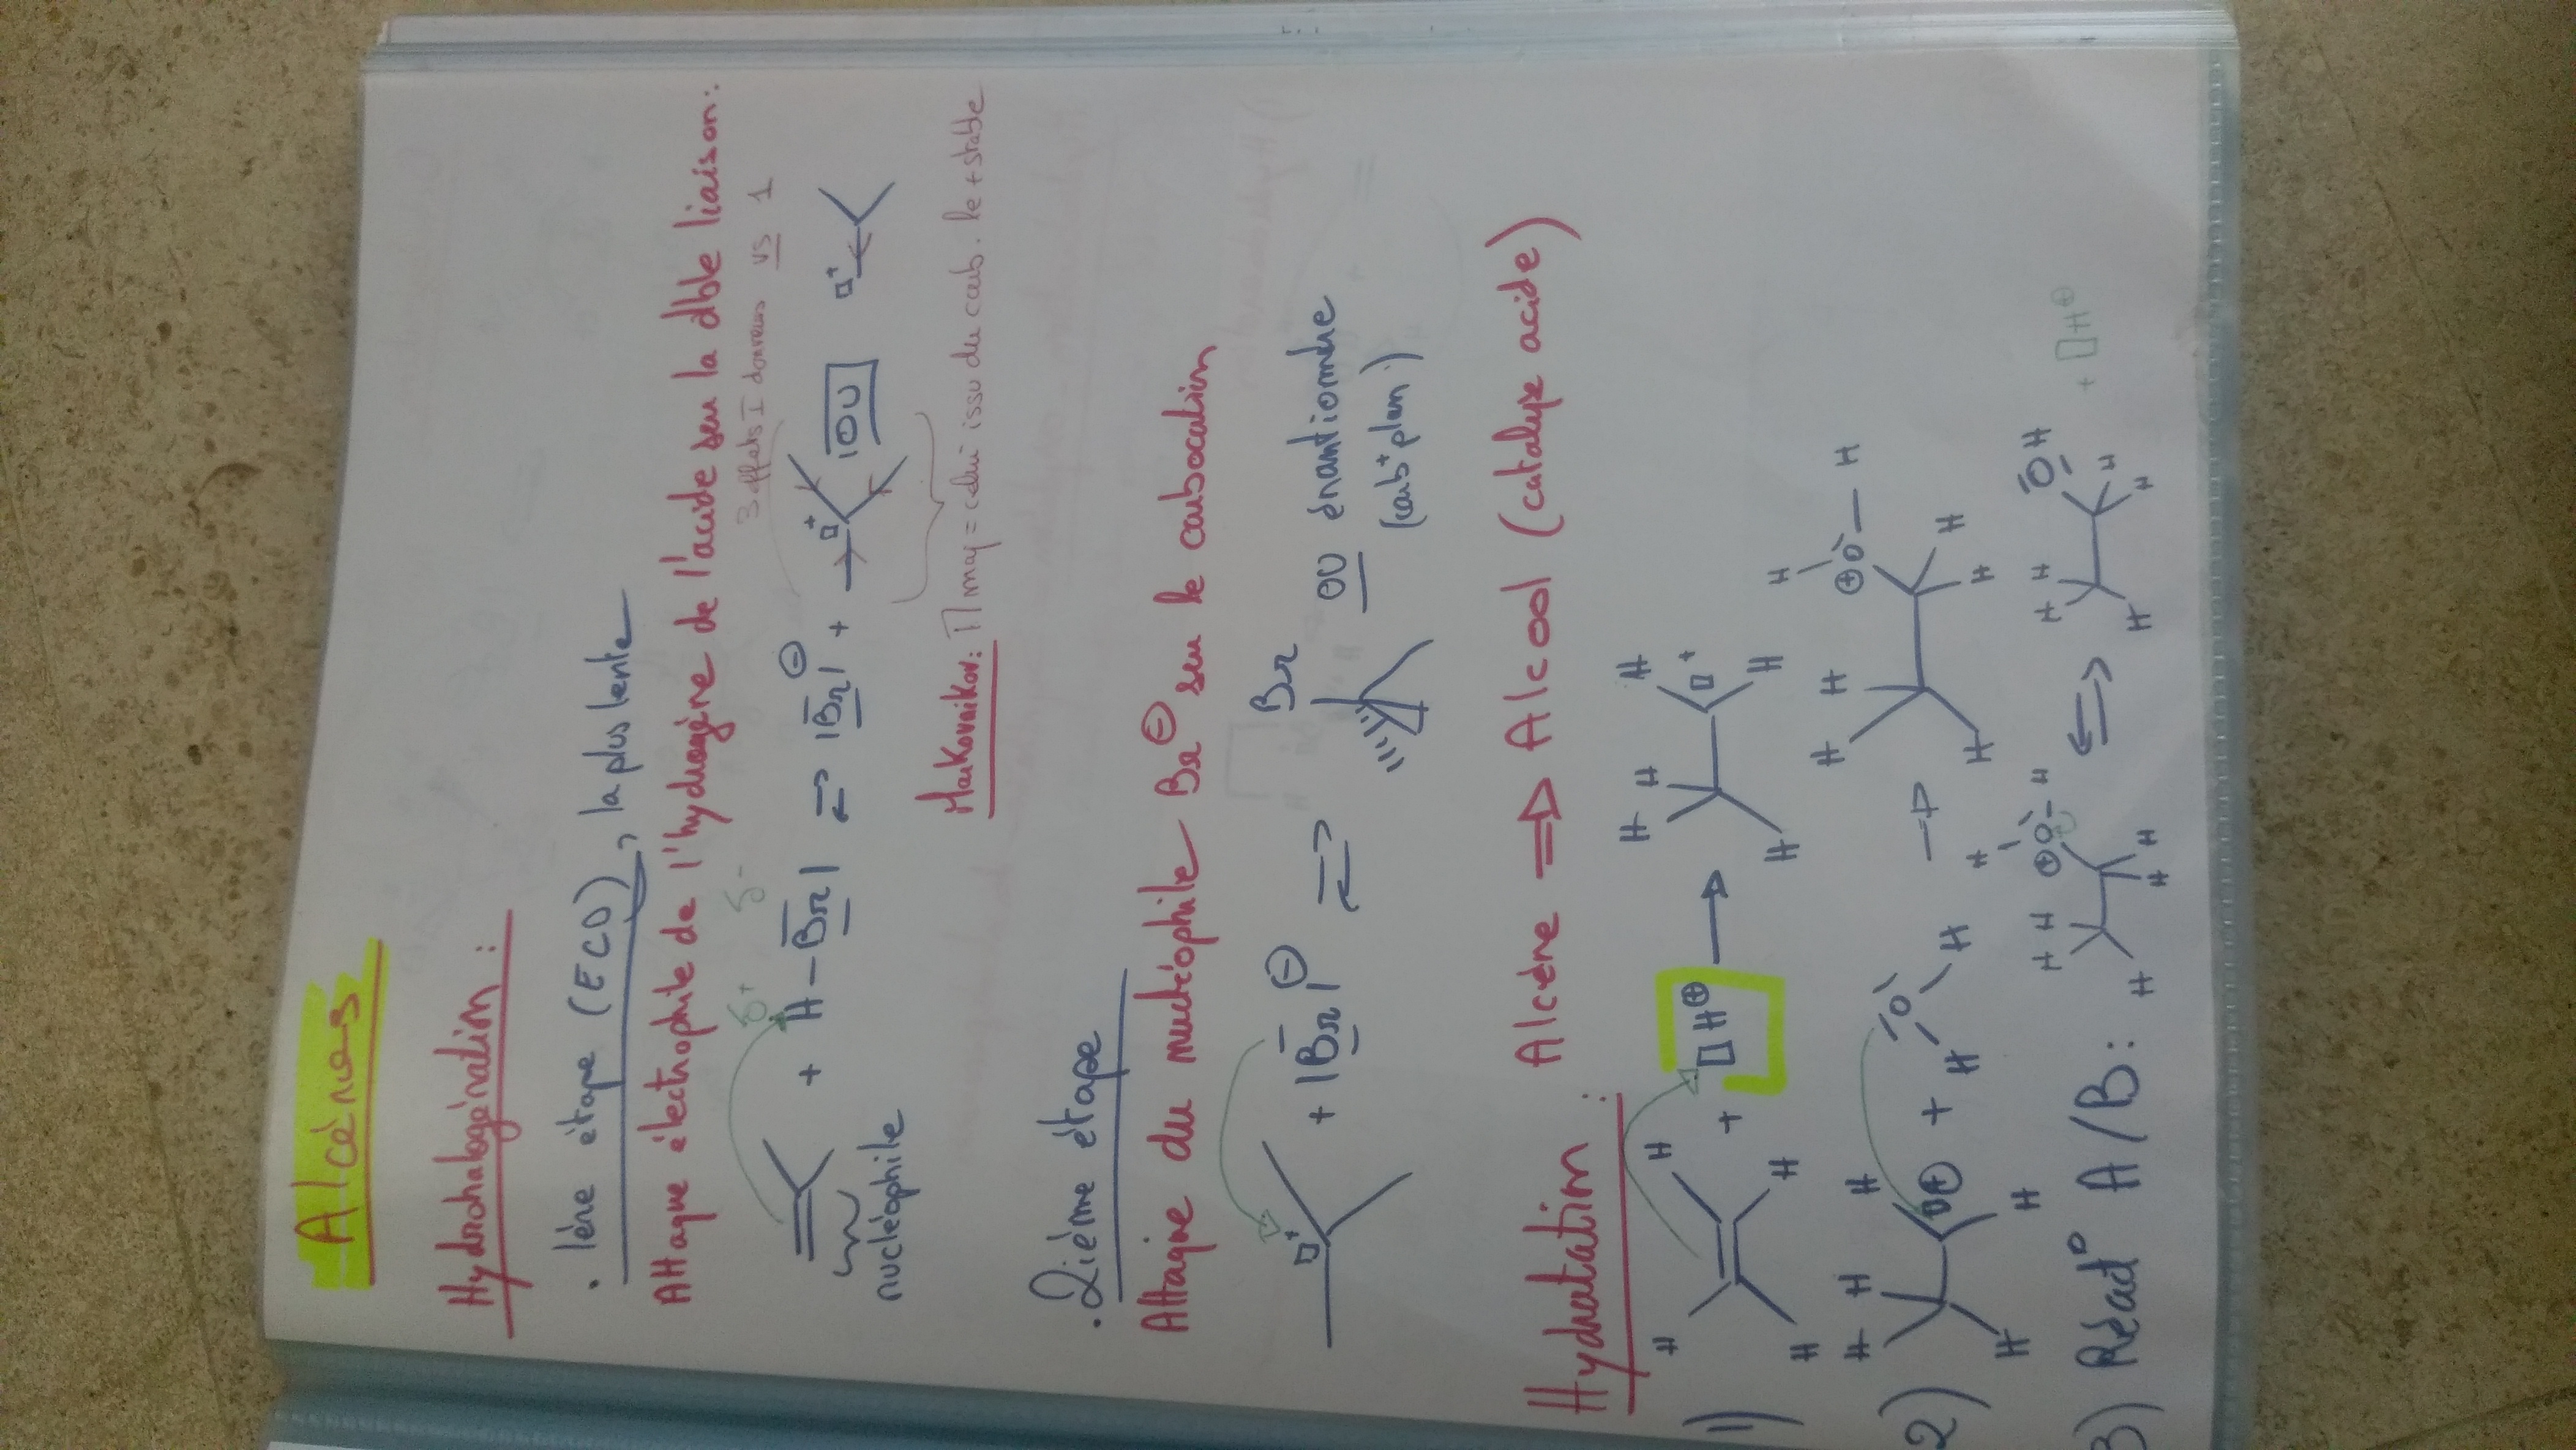 Alcénes
Hydrohalogénation :
. 1ére étape (ECD), la plus lente
Attaque électrophile de l'hydrogène de l'acide sur la dble liaison:
3 effets I donneurs vs 1
δ+ δ-
+ H-Br| ⇌ |Br|⊖ + □+ |OU| □+
nucléophile
Markovnikov: Π maj = celui issu du carb. le + stable
. 2ième étape
Attaque du nucléophile Br⊖ sur le carbocation
□+ + |Br|⊖ ⇌ Br OU énantiomère
(carb+ plan)
Hydratation : Alcène ⇒ Alcool (catalyse acide)
1) H H H H + □H⊕ → H H H □+ H H
2) H H H H H □⊕ + H O H → H H H H H ⊕O H H
3) Réact° A/B: H H H H H ⊕O H H ⇌ H H H H H OH + □H⊕